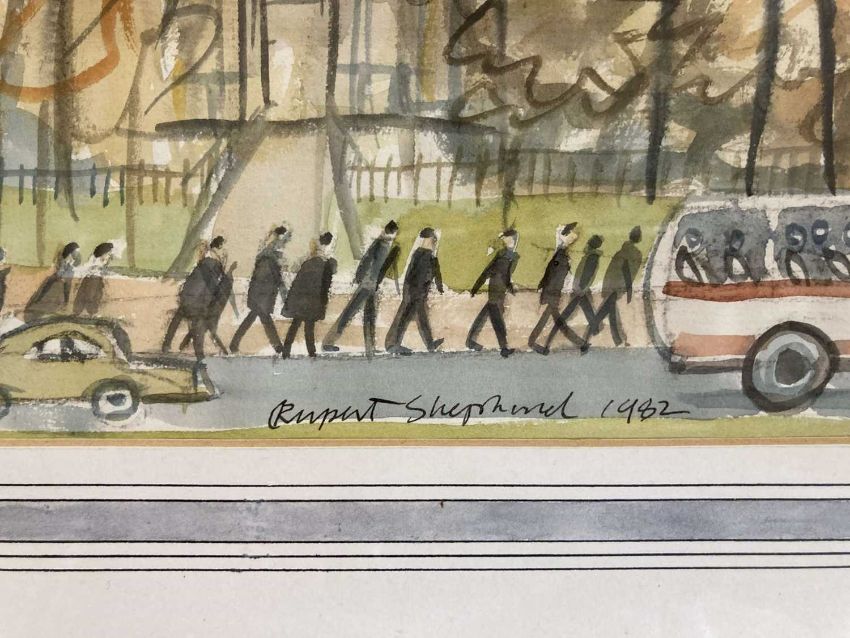 Rupert Shephard 1982